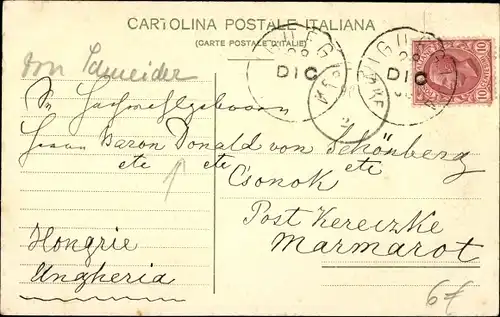 CARTOLINA POSTALE ITALIANA
(CARTE POSTALE D'ITALIE)
von Schneider
28
DIC
28
DIC
10
10
Sr Hochwohlgeboren
Herrn Baron Donald von Schönberg
etc etc etc
Csonok
Post Kereczke
Marmarot
Hongrie
Ungheria
6€